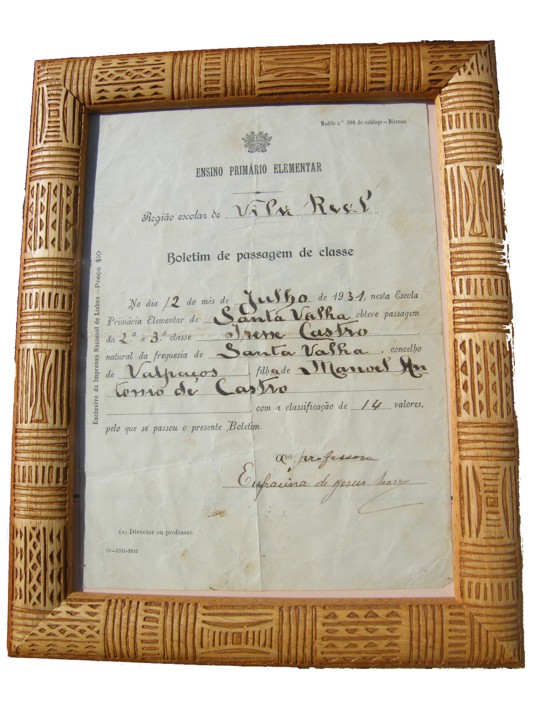 Modelo n.º 308 do catálogo — Diversos
ENSINO PRIMÁRIO ELEMENTAR
Região escolar de Vila Real
Boletim de passagem de classe
No dia 12 do mês de Julho de 1931, nesta Escola
Primária Elementar de Santa Valha obteve passagem
da 2.ª à 3.ª classe Irene Castro
natural da freguesia de Santa Valha, concelho
de Valpaços filha de Manoel An
tonio de Castro
com a classificação de 14 valores,
pelo que se passou o presente Boletim.
professora
de Jesus
(a) Director ou professor.
Exclusivo da Imprensa Nacional de Lisboa — Preço $50